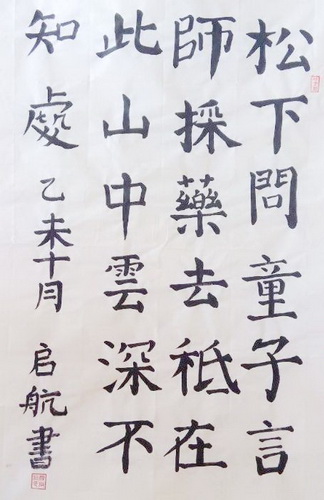 松下問童子言
師採藥去祗在
此山中雲深不
知處乙未十月启航書